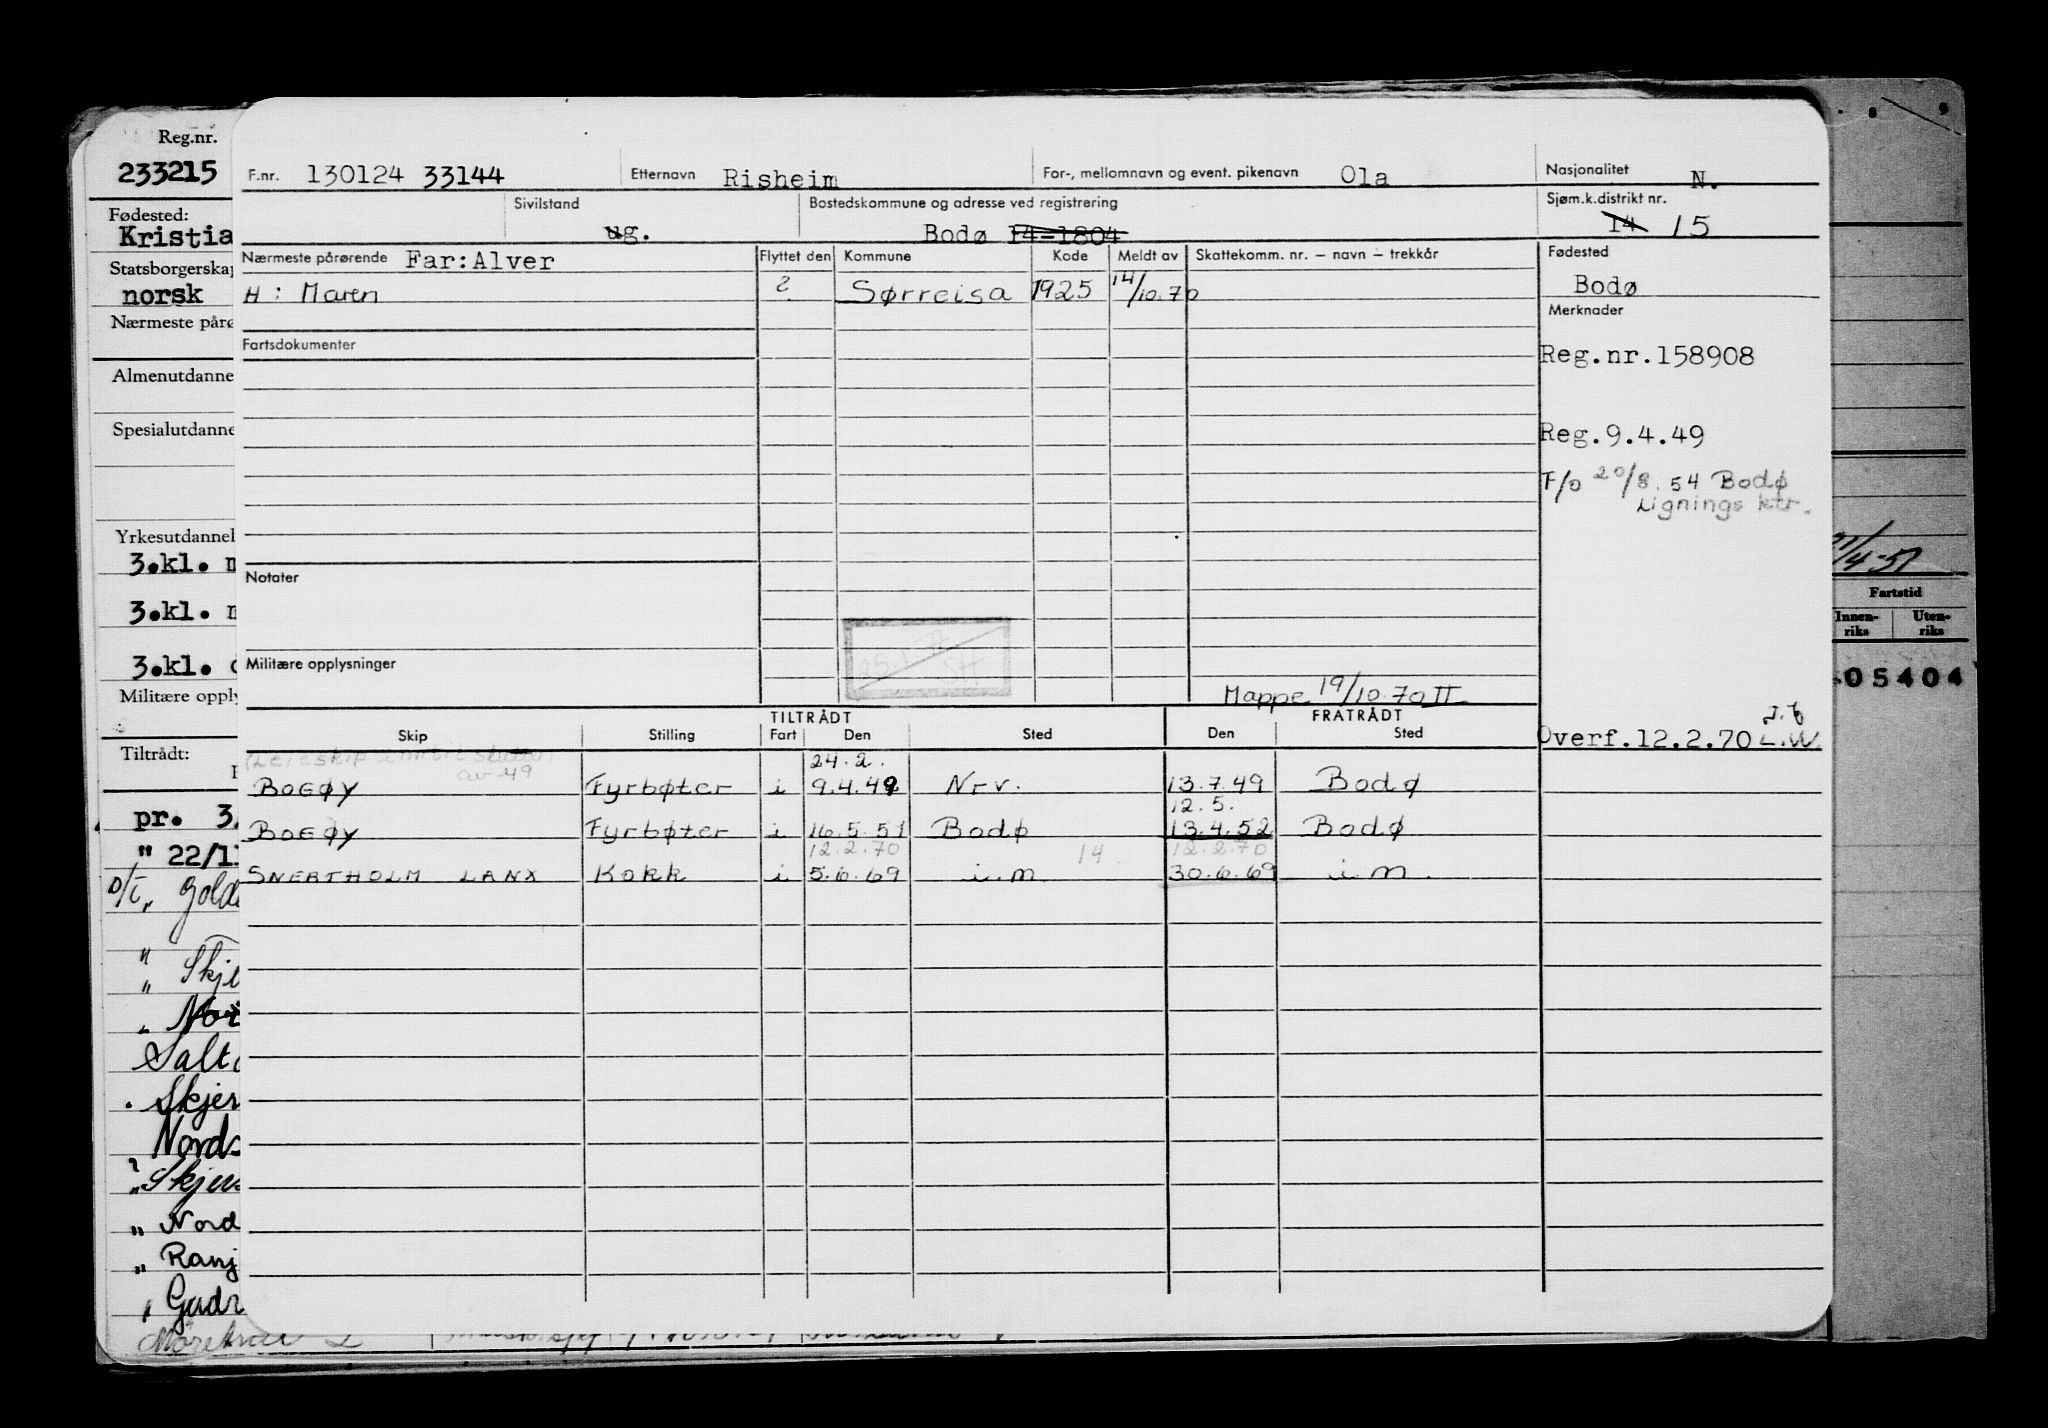 Reg.nr.
233215
Fødested:
Kristia
Statsborgerskap
norsk
Nærmeste pårø
Almenutdanne
Spesialutdanne
Yrkesutdannel
3.kl. m
3.kl. m
3.kl.
Militære opply
Tiltrådt:
pr. 3.
" 22/1
Skje
Salt
Skjer
Nords
Skjer
" Nord
" Ranj
F.nr. 130124 33144 Etternavn Risheim For-, mellomnavn og event. pikenavn Ola Nasjonalitet N.
Sivilstand ug. Bostedskommune og adresse ved registrering Bodø 14-1804 Sjøm.k.distrikt nr. 14 15
Nærmeste pårørende Far:Alver Flyttet den Kommune Kode Meldt av Skattekomm. nr. – navn – trekkår Fødested
H : Maren ? Sørreisa 1925 14/10.70 Bodø
Merknader
Fartsdokumenter
Reg.nr.158908
Reg.9.4.49
F/o 20/8.54 Bodø
Lignings ktr.
Notater
Militære opplysninger
Mappe 19/10.70 II
TILTRÅDT FRATRÅDT
Skip Stilling Fart Den Sted Den Sted
Overf.12.2.70 L.W.
24.2.
av -49
BOGØY Fyrbøter i 9.4.49 Nrv. 13.7.49 Bodø
12.5.
BOGØY Fyrbøter i 16.5.51 Bodø 13.4.52 Bodø
12.2.70 14 12.2.70
SNERTHOLM LANX Kokk i 5.6.69 i.m. 30.6.69 i.m.
21/4-51
Fartstid
Innen-
riks
Uten-
riks
05404